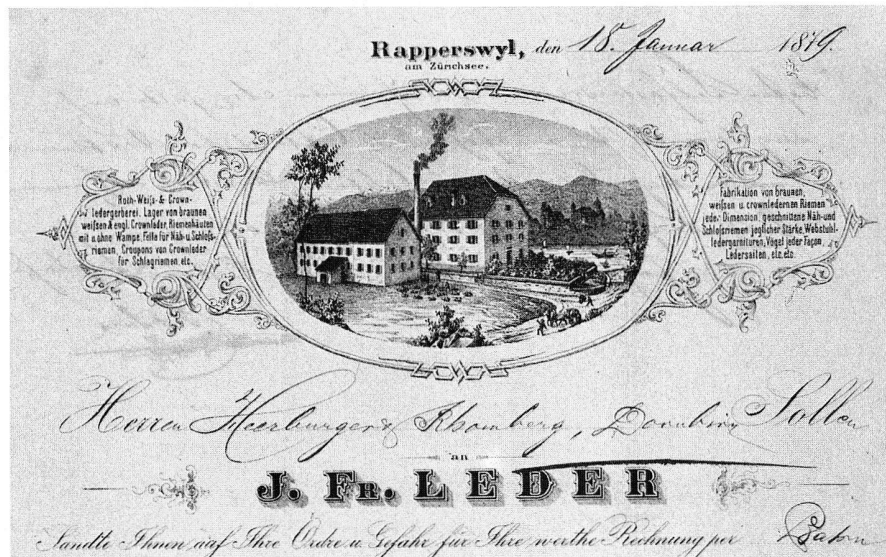 Rapperswyl, den 18. Januar 1879.
am Zürichsee.
Roth- Weiſs- & Crown-
ledergerberei. Lager von braunen
weiſsen & engl. Crownleder, Riemenhäuten
mit u. ohne Wampe. Felle für Näh- u. Schloſs-
riemen, Croupons von Crownleder
für Schlagriemen etc.
Fabrikation von braunen,
weiſsen u. crownledernen Riemen
jeder Dimension, geschnittene Näh- und
Schloſsriemen jeglicher Stärke, Webstuhl-
ledergarnituren, Vögel jeder Façon,
Ledersaiten, etc. etc.
Herren Heerburger & Rhomberg, Dornbirn Sollen
an
J. Fr. LEDER
Sandte Ihnen auf Ihre Ordre u. Gefahr für Ihre werthe Rechnung per